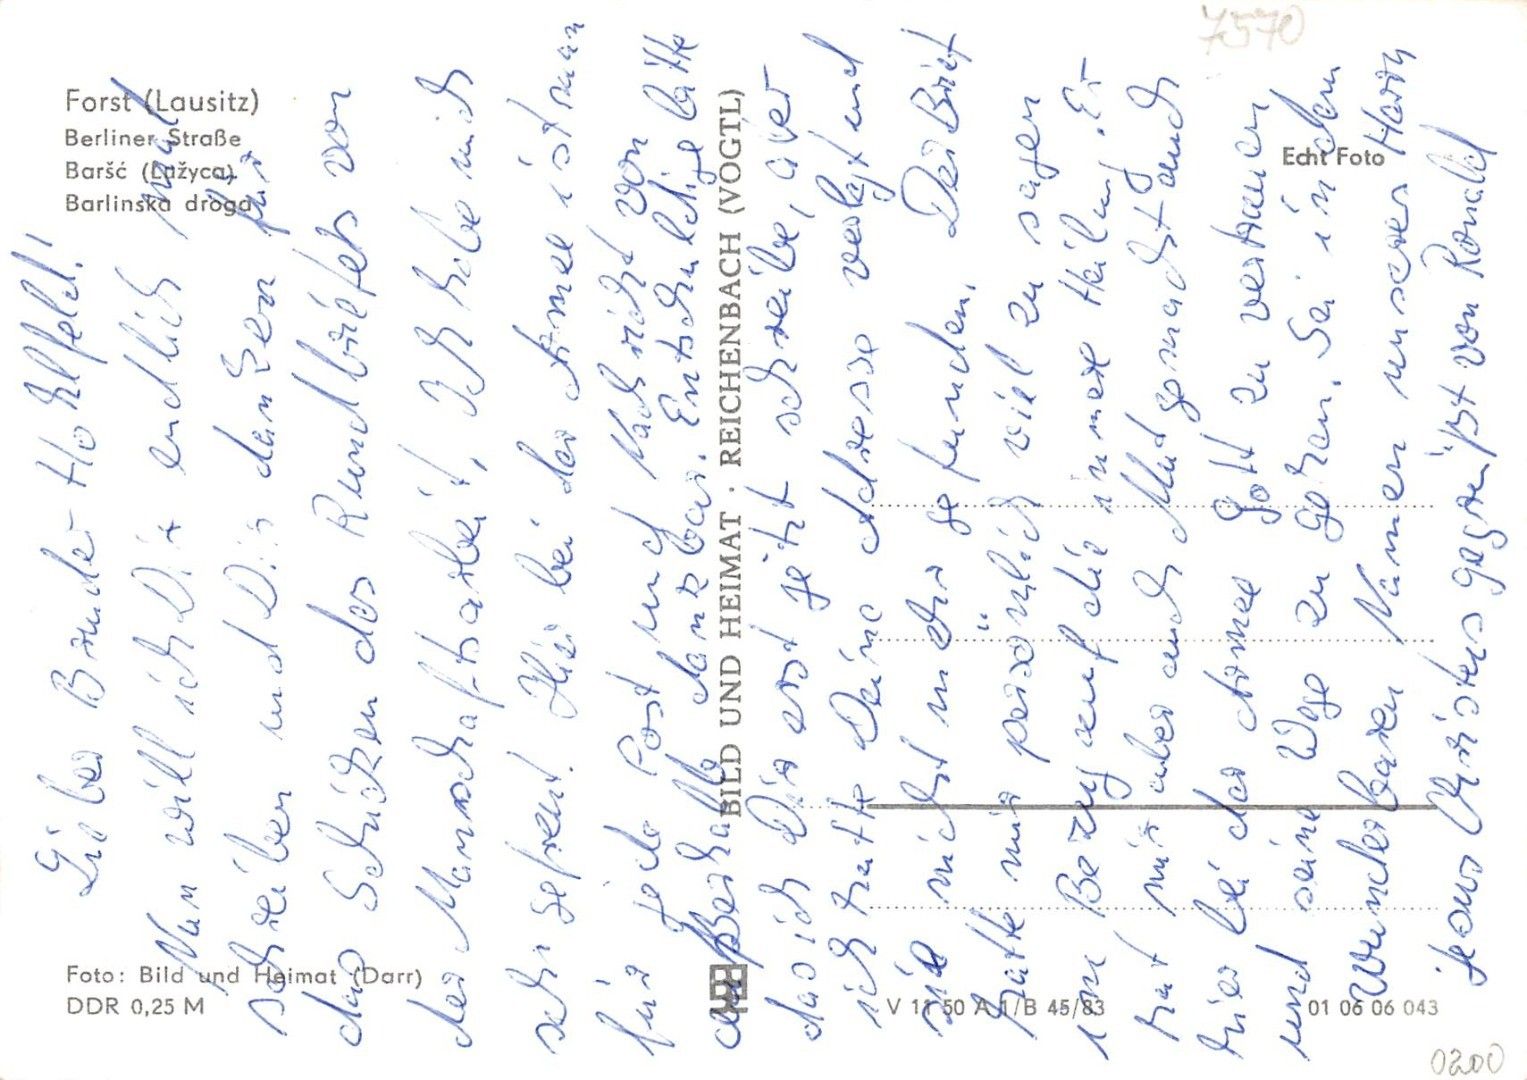 7570
Forst (Lausitz)
Berliner Straße
Baršć (Łužyca)
Barlinska droga
Echt Foto
Lieber Bruder Hohlfeld!
Nun will ich Dir endlich mal
schreiben und Dir danken für
das Schicken des Rundbriefes von
der Mannschaftsarbeit. Ich habe mich
sehr gefreut. Hier bei der Armee ist man
für jede Post und Nachricht von
zu Hause dankbar. Entschuldige bitte
das ich Dir erst jetzt schreibe, aber
ich hatte Deine Adresse verlegt und
sie nicht mehr gefunden. Der Brief
hatte mir persönlich viel zu sagen
im Bezug auf die innere Heilung. Er
hat mir aber auch Mut gemacht auch
hier bei der Armee Gott zu vertrauen
und seine Wege zu gehen. Sei in dem
Wunderbaren Namen unseres Herrn
Jesus Christus gegrüßt von Ronald
BILD UND HEIMAT · REICHENBACH (VOGTL)
Foto: Bild und Heimat (Darr)
DDR 0,25 M
V 11 50 A 1/B 45/83
01 06 06 043
0200